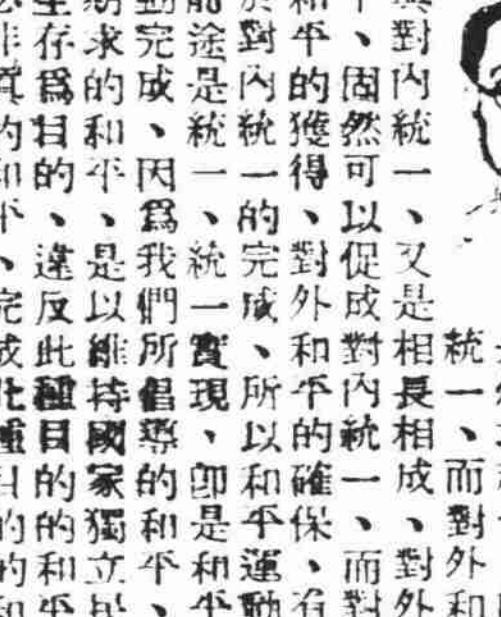 統一、而對外和
對內統一、又是相長相成、對外
、固然可以促成對內統一、而對
和平的獲得、對外和平的確保、有
於對內統一的完成、所以和平運動
前途是統一、統一實現、卽是和平
動完成、因爲我們所倡導的和平、
期求的和平、是以維持國家獨立民
生存爲目的、違反此種目的的和平
非真的和平、完成此種目的的和